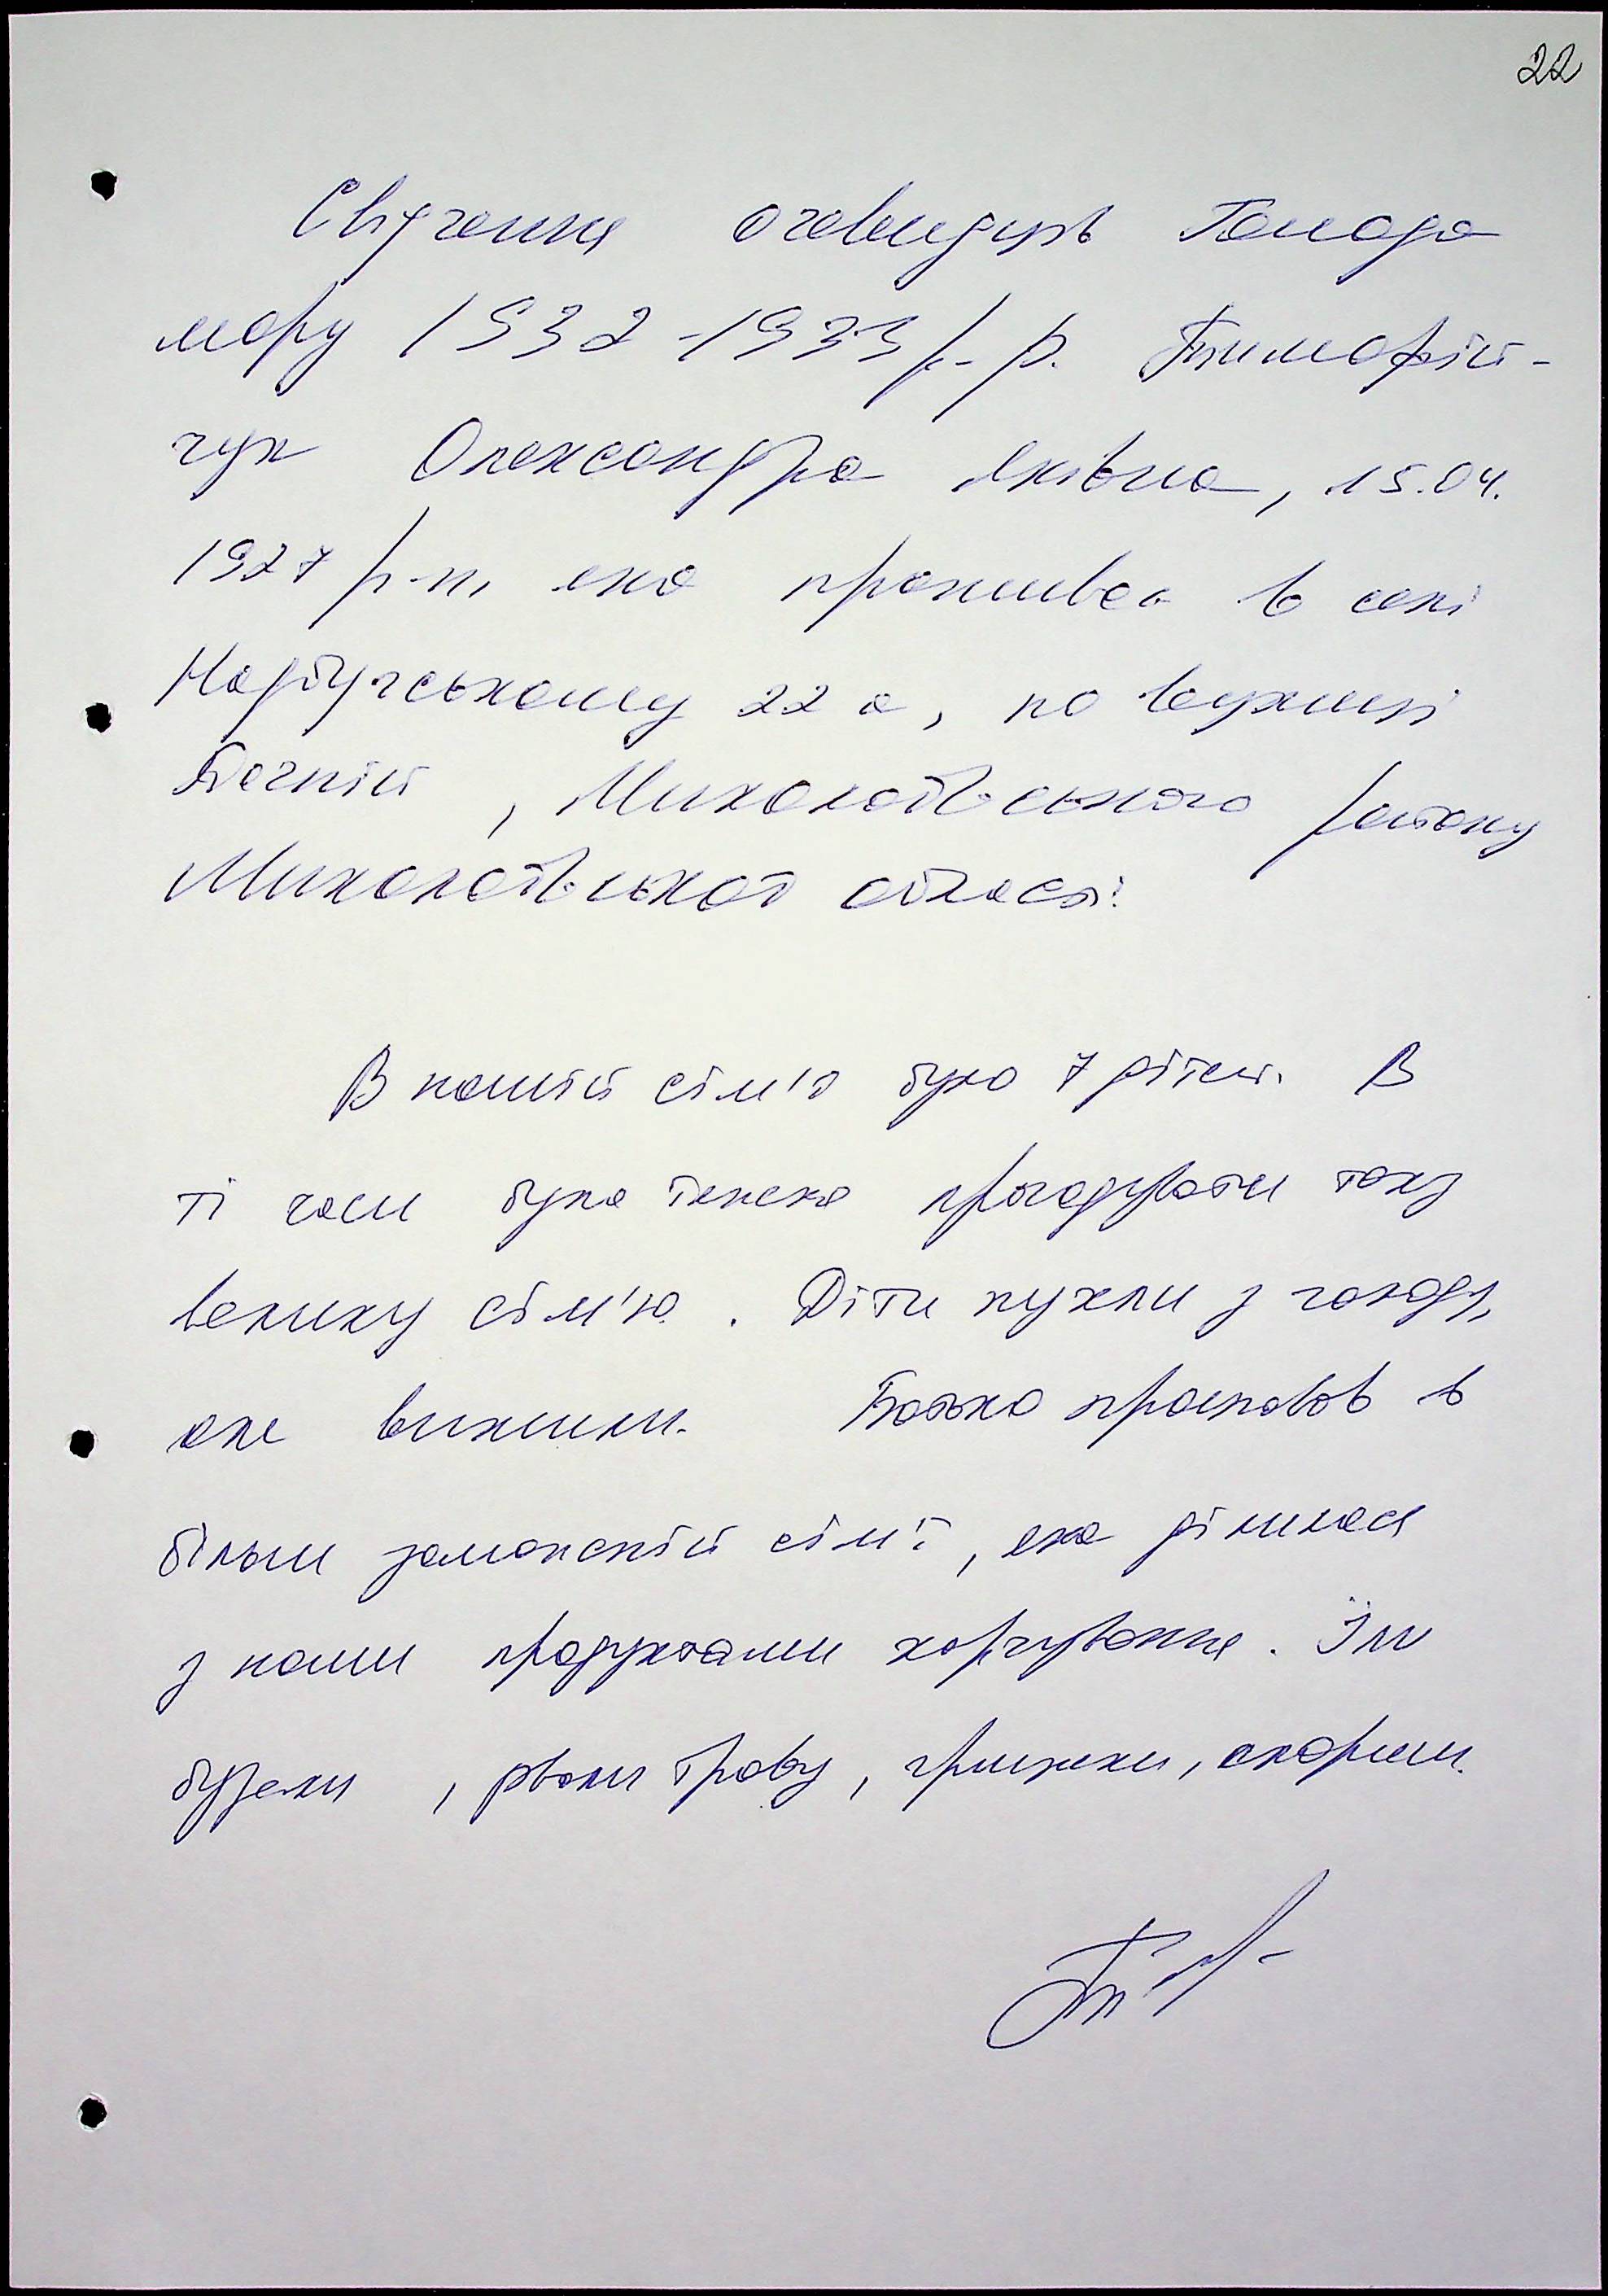 22
Свідчення очевидців Голодо
мору 1932-1933 р.р. Тимофій-
чук Олександра Яківна, 15.04.
1927 р.н, яка проживає в селі
Надбузькому 22 а, по вулиці
Степній, Миколаївського району
Миколаївської області.
В нашій сім'ї було 7 дітей. В
ті часи було тяжко прогодувати таку
велику сім'ю. Діти пухли з голоду,
але вижили. Батько працював в
більш заможній сім'ї, яка ділилася
з нами продуктами харчування. Їли
бузьки, рвали траву, грицики, скориш.